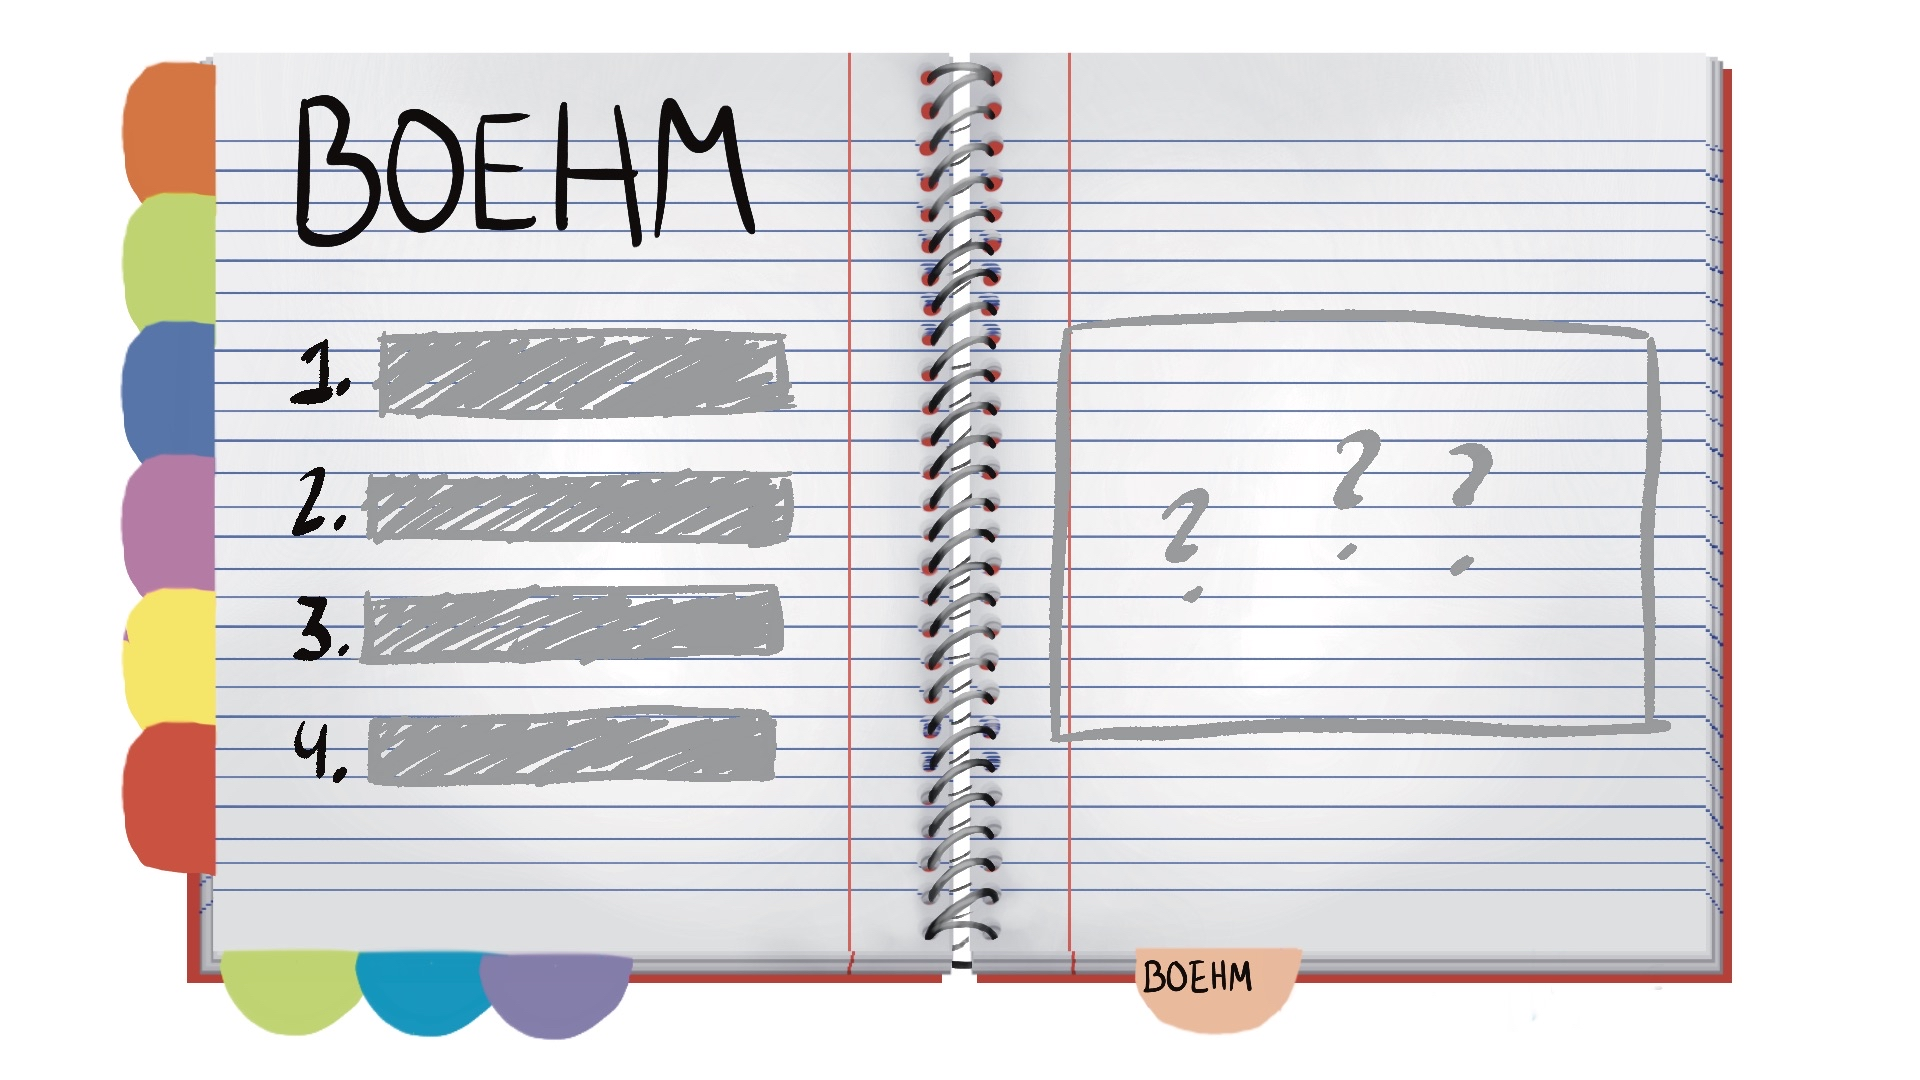 BOEHM
1.
2.
3.
4.
? ? ?
BOEHM